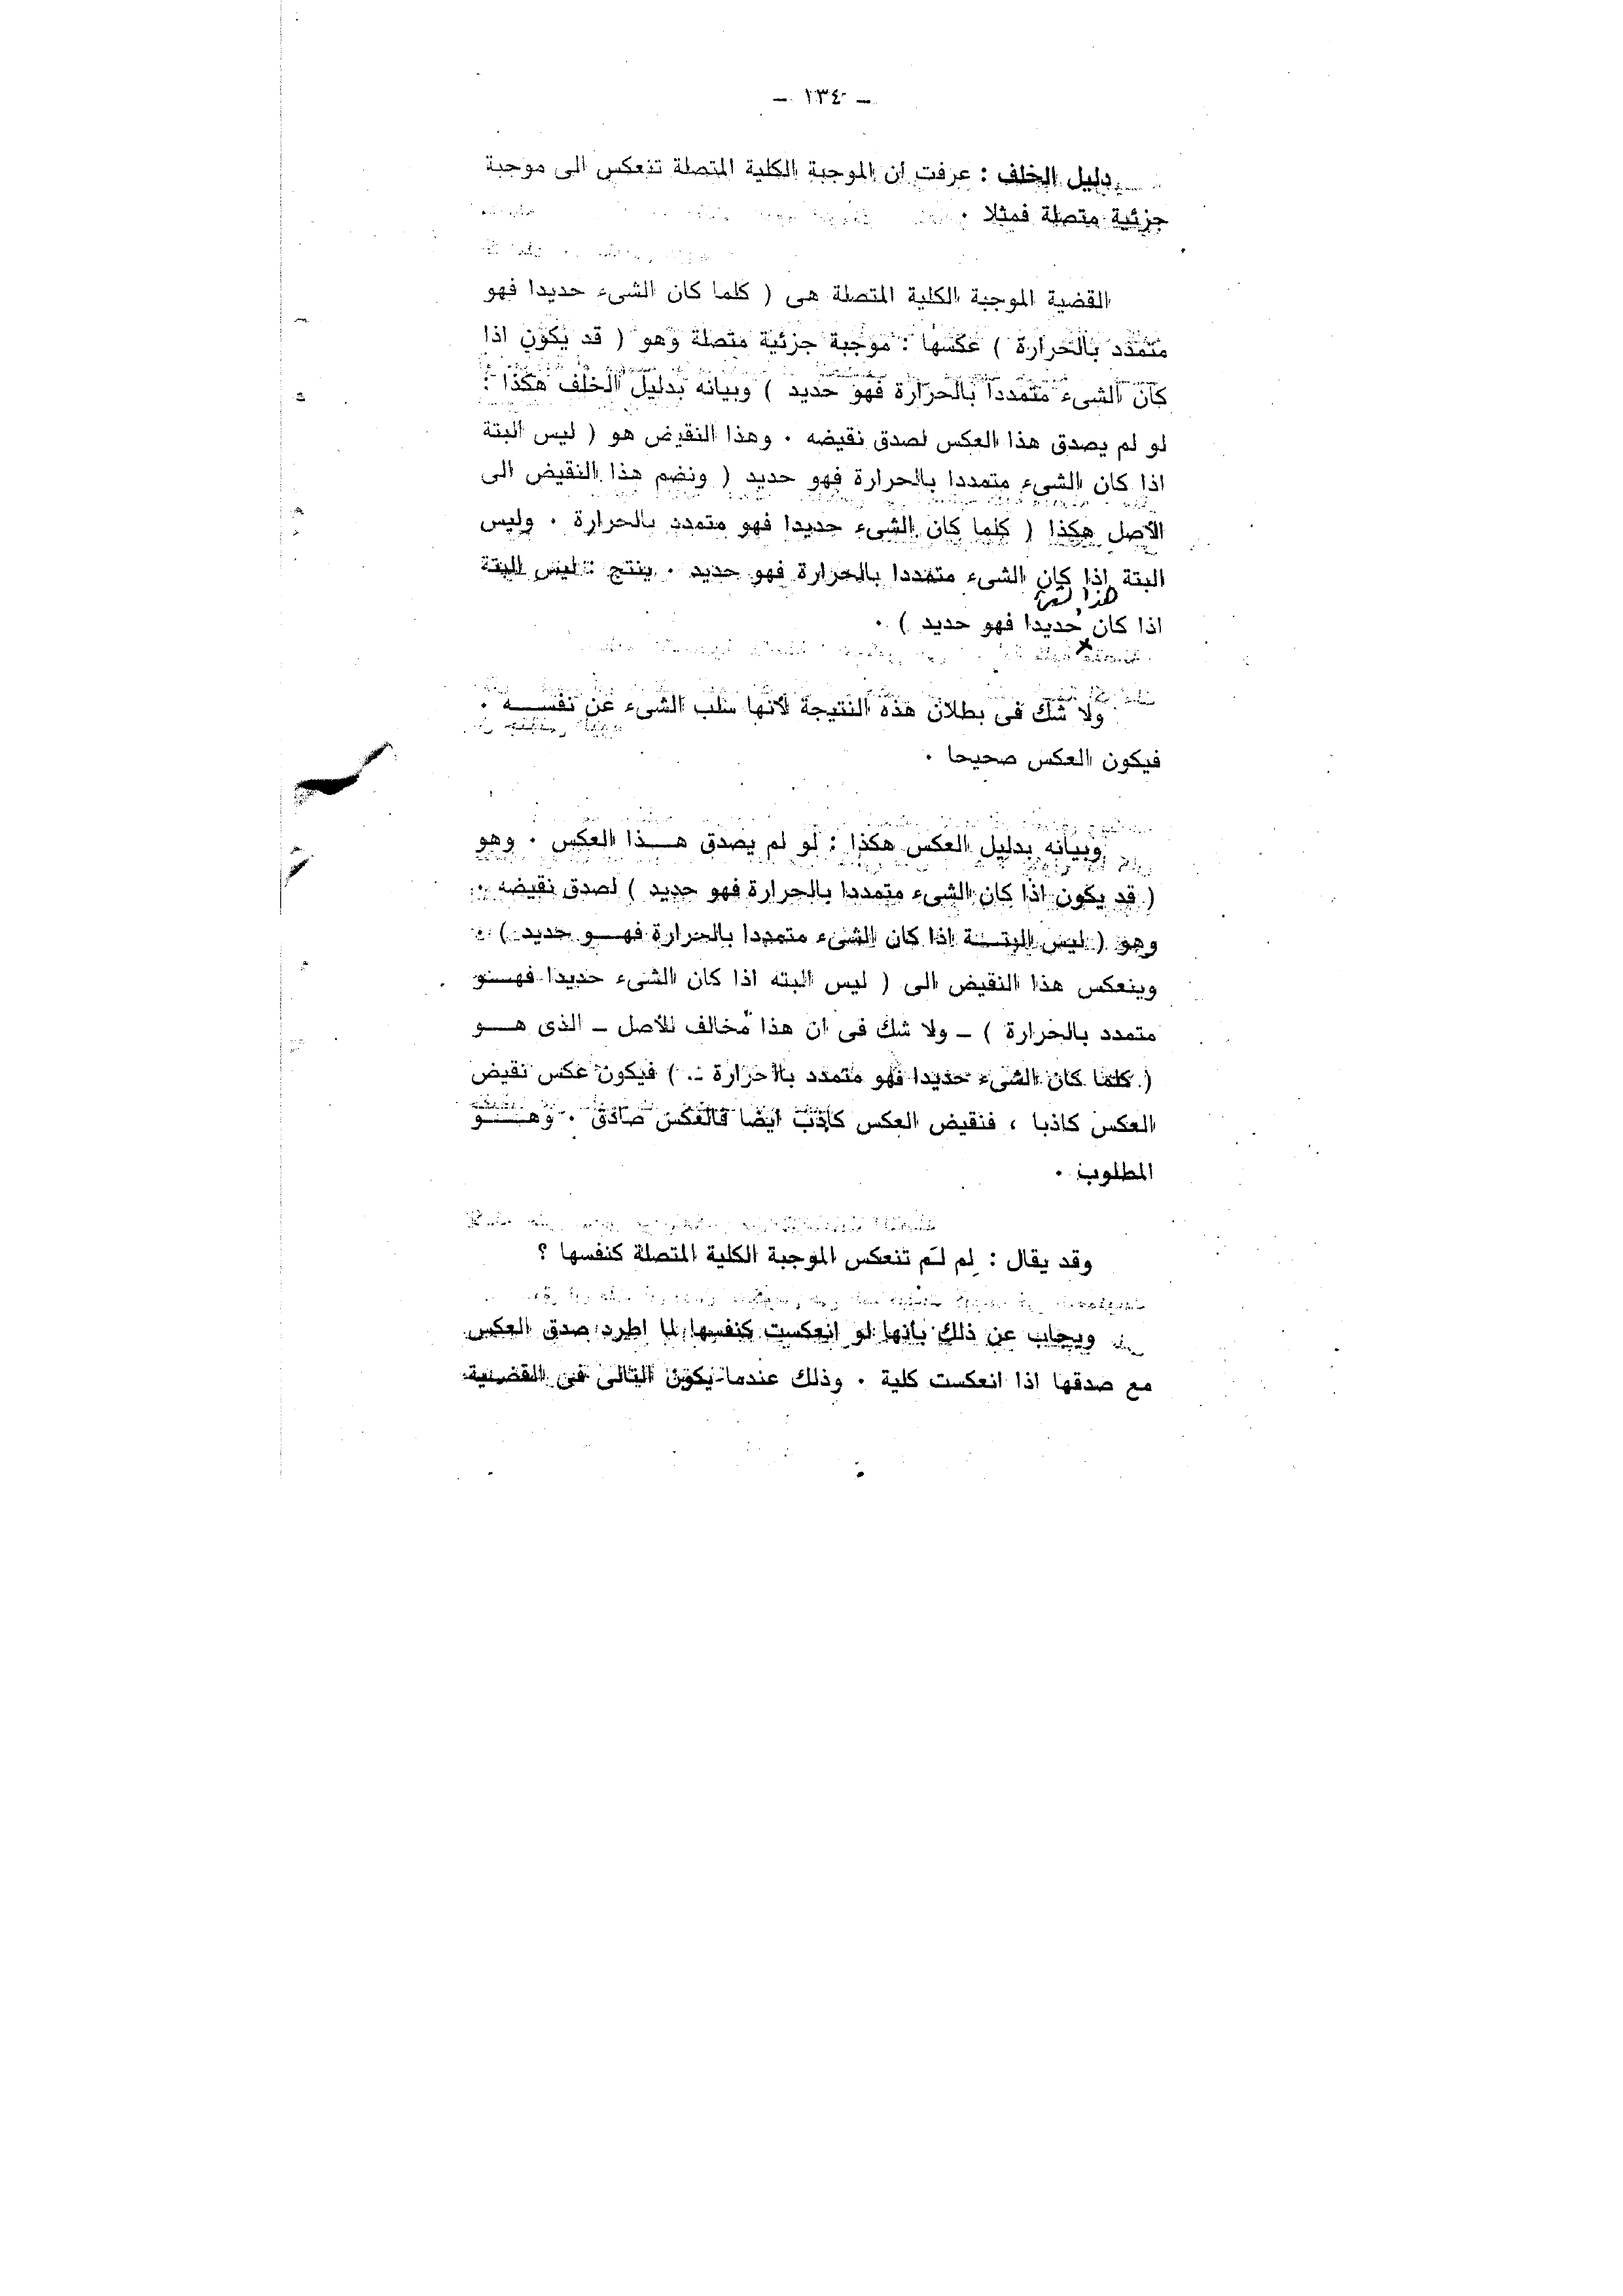 – ١٣٤ –
دليل الخلف : عرفت ان الموجبة الكلية المتصلة تنعكس الى موجبة
جزئية متصلة فمثلا .
القضية الموجبة الكلية المتصلة هى ( كلما كان الشىء حديدا فهو
متمدد بالحرارة ) عكسها : موجبة جزئية متصلة وهو ( قد يكون اذا
كان الشىء متمددا بالحرارة فهو حديد ) وبيانه بدليل الخلف هكذا :
لو لم يصدق هذا العكس لصدق نقيضه . وهذا النقيض هو ( ليس البتة
اذا كان الشىء متمددا بالحرارة فهو حديد ( ونضم هذا النقيض الى
الأصل هكذا ( كلما كان الشىء حديدا فهو متمدد بالحرارة . وليس
البتة اذا كان الشىء متمددا بالحرارة فهو حديد . ينتج : ليس البتة
هذا
اذا كان حديدا فهو حديد ) .
ولا شك فى بطلان هذه النتيجة لأنها سلب الشىء عن نفســـه .
فيكون العكس صحيحا .
وبيانه بدليل العكس هكذا : لو لم يصدق هـــذا العكس . وهو
( قد يكون اذا كان الشىء متمددا بالحرارة فهو حديد ) لصدق نقيضه .
وهو ( ليس البتـــة اذا كان الشىء متمددا بالحرارة فهـــو حديد )
وينعكس هذا النقيض الى ( ليس البته اذا كان الشىء حديدا فهـــو
متمدد بالحرارة ) – ولا شك فى ان هذا مخالف للأصل – الذى هـــو
( كلما كان الشىء حديدا فهو متمدد بالحرارة . ) فيكون عكس نقيض
العكس كاذبا ، فنقيض العكس كاذب ايضا فالعكس صادق . وهـــو
المطلوب .
وقد يقال : لِم لَم تنعكس الموجبة الكلية المتصلة كنفسها ؟
ويجاب عن ذلك بانها لو انعكست كنفسها لما اطرد صدق العكس
مع صدقها اذا انعكست كلية . وذلك عندما يكون التالى فى القضية